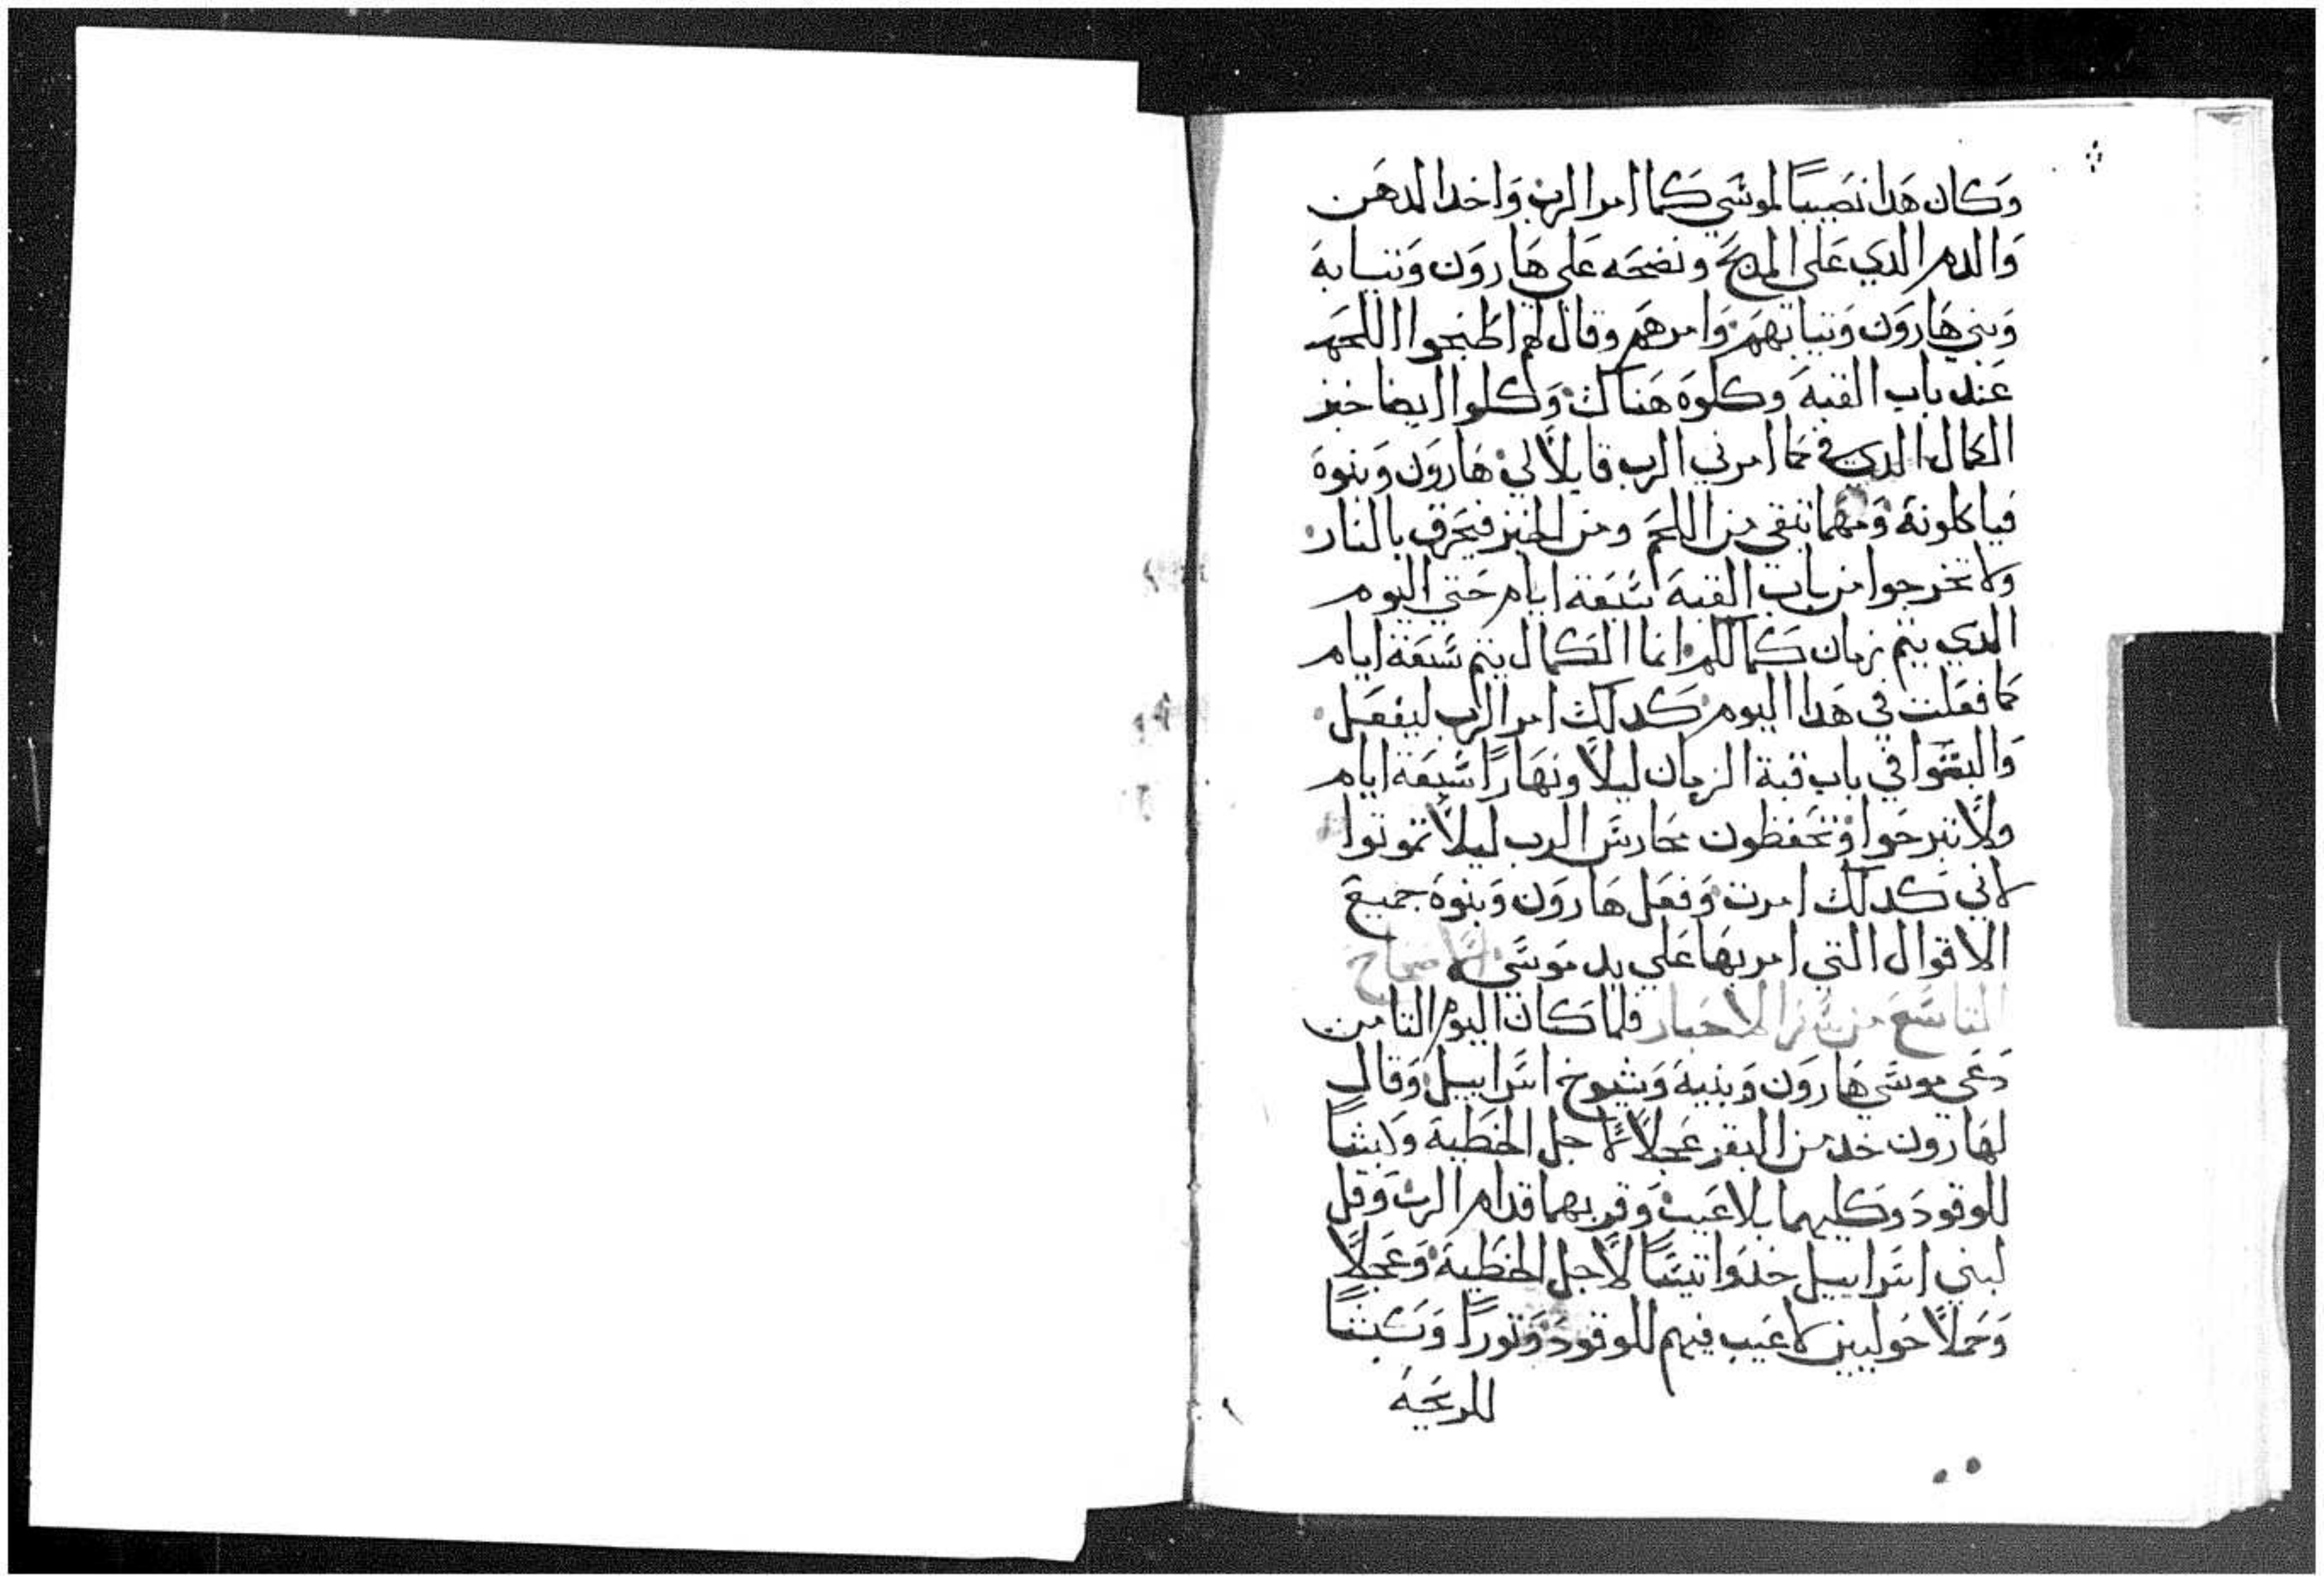 وَكان هَدا نصَيبًا لموسَي كَما امر الرب وَاخد الدهَن
وَالدم الدي عَلي المدبح ونضحَه عَلي هَارَون وَتيابهَ
وَبني هَارَون وَتيابهمَ وَامرهمَ وقال لهم اطبخوا اللحَم
عَند باب القبهَ وكلوَه هَناك وَكلوا ايضا خبز
الكمال الدي فيَ كما امرني الرب قايلاً لي هَارَون وَبنوهَ
فياكلونهَ وَمهَما تبقي من اللحَم ومن الخبز فيحَرق بالنار
ولا تخرجوا من باب القبهَ سَبعَة ايام حَتي اليوم
الدي يتم زمان كَمالكم انما الكمال يتم سَبعَة ايام
كما فعَلت في هَدا اليوم كَدلك امر الرب ليفعَل
وَالبثوا في باب قبة الزمان ليلاً ونهَارًا سَبعَة ايام
ولا تبرحَوا وَتحَفظون محَارسَ الرب ليلاً تموتوا
لاني كَدلك امرت وَفعَل هَارَون وَبنوهَ جميعَ
الاقوال التي امر بهَا عَلي يد مَوسَي الاصحاح
التاسَع من سَفر الاحبار فلما كَان اليوم التامن
دَعَي موسَي هَارَون وَبنيهَ وَشيوخ اسَراييل وَقال
لهَارون خد من البقر عَجلاً لاجل الخَطيهَ وَكبشًا
للوقودَ وَكليهما بلا عَيب وَقربهما قدام الرب وَقل
لبني اسَراييل خدَوا تيسًَا لاجل الخَطيهَ وَعَجلاً
وَحملاً حَوليين لا عَيب فيهم للوقودَ وَتورًا وَكَبشًا
للدبحَهَ